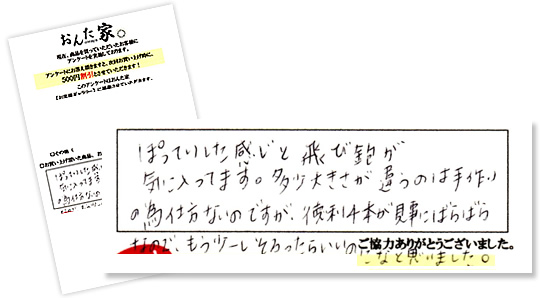 おんた家。
現在、商品を買っていただいたお客様に
アンケートを実施しております。
アンケートにお答え頂きますと、次回お買い上げ時に、
500円割引とさせていただきます！
このアンケートはおんた家
ぽってりした感じと
気に入ってます
の為仕方ないの
ぽってりした感じと 飛び鉋が
気に入ってます。多少大きさが違うのは手作り
の為仕方ないのですが、徳利4本が見事にばらばら
なので、もう少しそろったらいいの
ご協力ありがとうございました。
になと思いました。